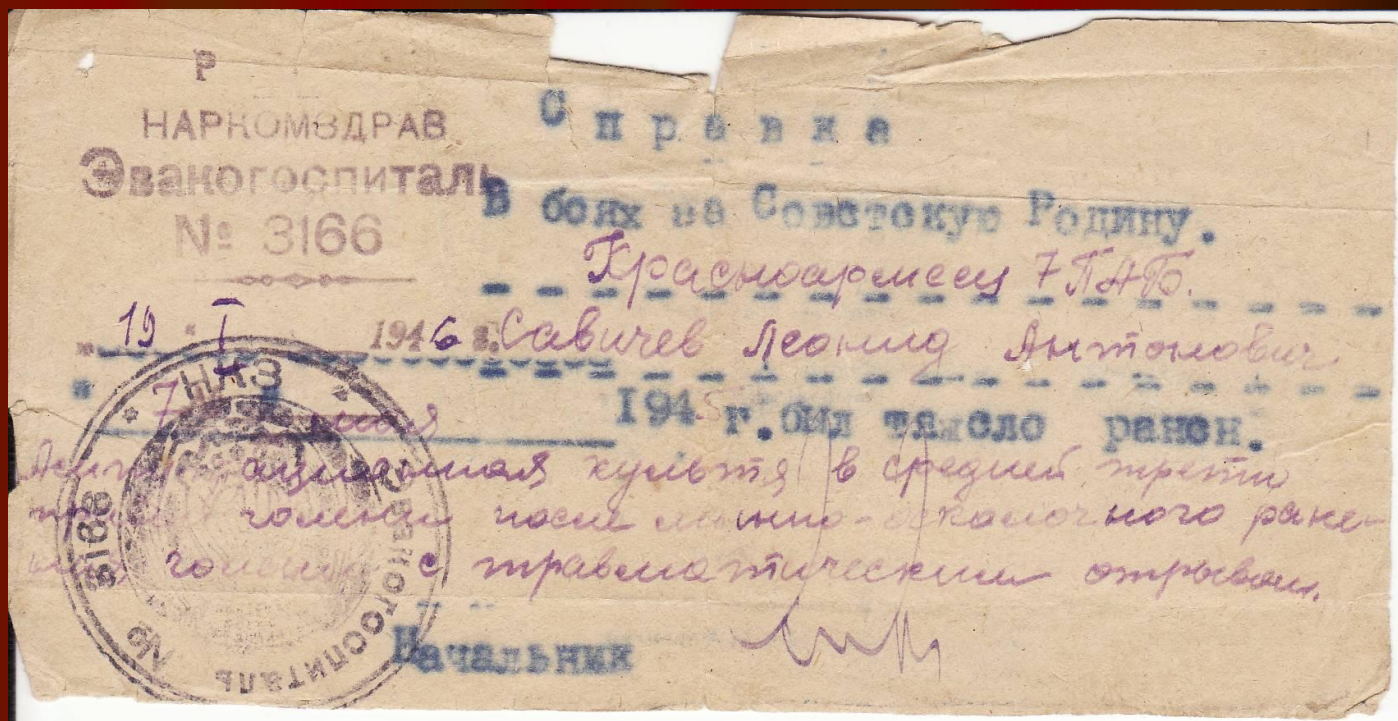 Р
НАРКОМЗДРАВ
Эвакогоспиталь
№ 3166
Справка
В боях за Советскую Родину.
Красноармеец 7 ПАБ.
"19" I 1946 г. Савичев Леонид Антонович
"7" 1945 г. был тяжело ранен.
культя в средней трети
голени после минно-осколочного ране-
голени с травматическим отрывом.
Начальник
НКЗ
Эвакогоспиталь № 3166